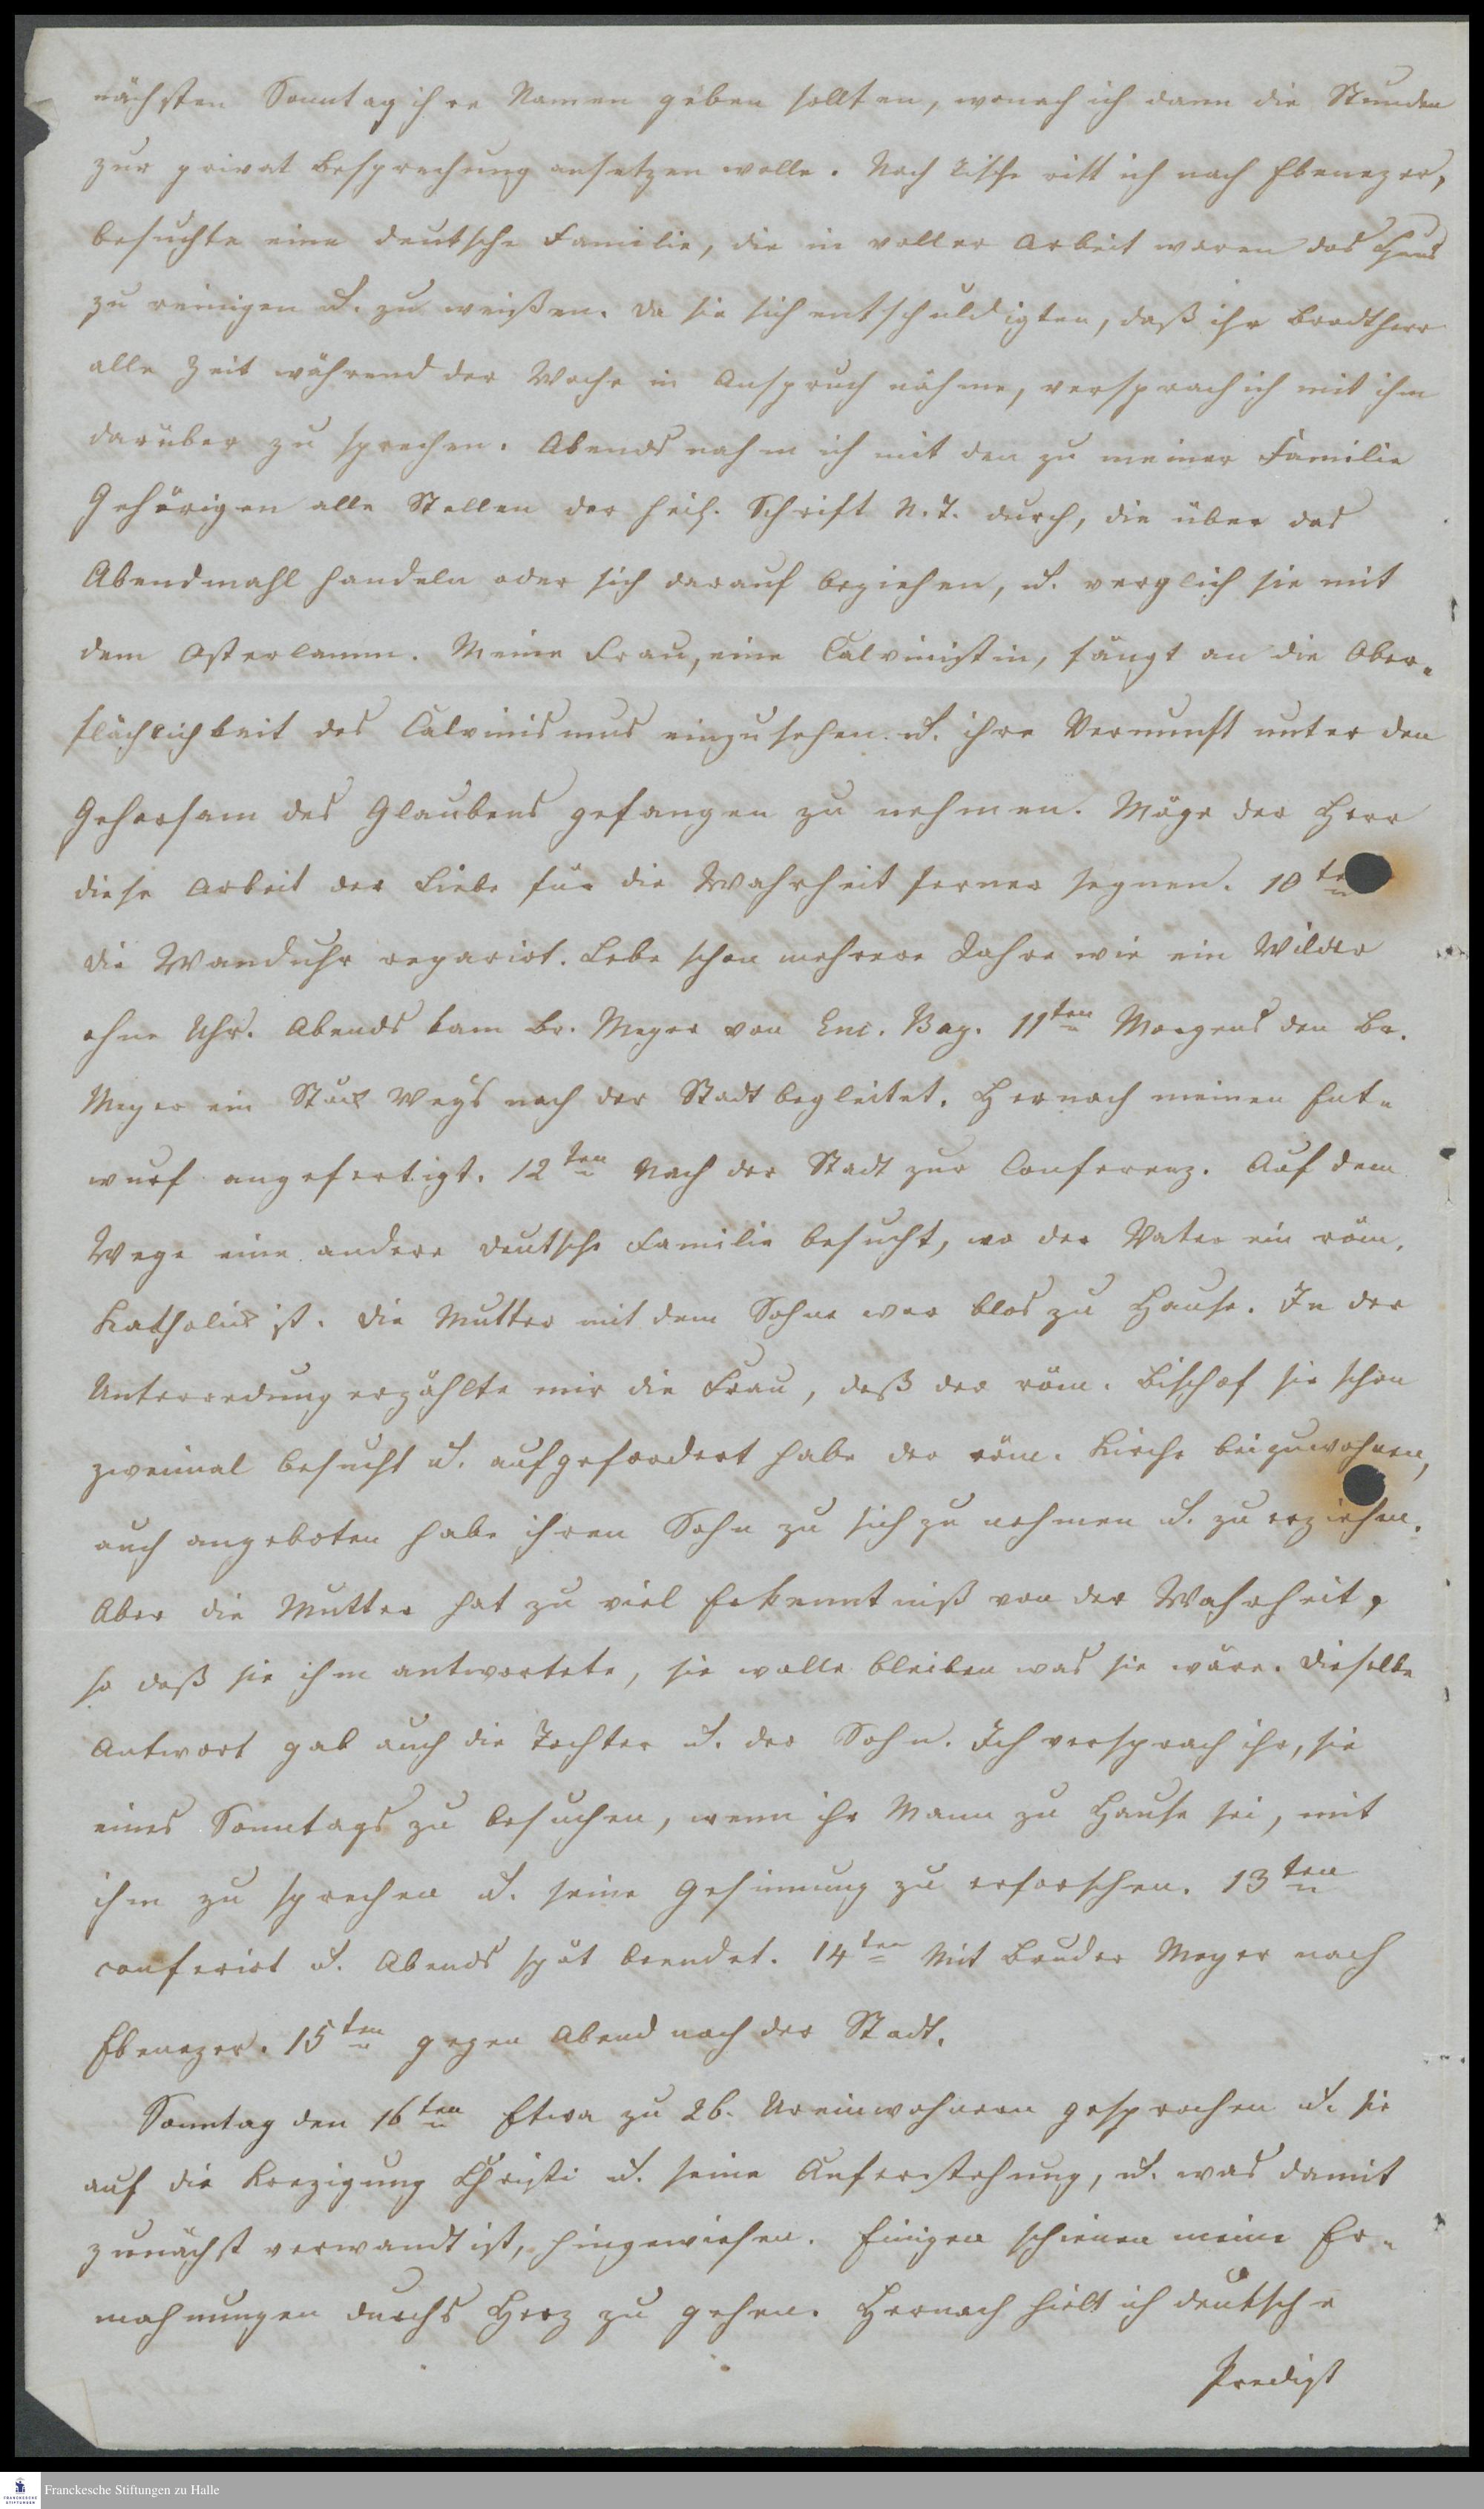 nächsten Sonntag ihre Namen geben sollten, wonach ich dann die Stunden
zur privat Besprechung ansetzen wolle. Nach Tische ritt ich nach Ebenezer,
besuchte eine deutsche Familie, die in voller Arbeit waren das Haus
zu reinigen u. zu weißen. Da sie sich entschuldigten, daß ihr Brodtherr
alle Zeit während der Woche in Anspruch nähme, versprach ich mit ihm
darüber zu sprechen. Abends nahm ich mit den zu meiner Familie
Gehörigen alle Stellen der heil. Schrift N. T. durch, die über das
Abendmahl handeln oder sich darauf beziehen, u. verglich sie mit
dem Osterlamm. Meine Frau, eine Calvinistin, fängt an die Ober-
flächlichkeit des Calvinismus einzusehen u. ihre Vernunft unter den
Gehorsam des Glaubens gefangen zu nehmen. Möge der Herr
diese Arbeit der Liebe für die Wahrheit ferner segnen. 10ten
die Wanduhr reparirt. Lebe schon mehrere Jahre wie ein Wilder
ohne Uhr. Abends kam Br. Meyer von Enc. Bay. 11ten Morgens den Br.
Meyer ein Stück Wegs nach der Stadt begleitet. Hernach meinen Ent-
wurf angefertigt. 12ten Nach der Stadt zur Conferenz. Auf dem
Wege eine andere deutsche Familie besucht, wo der Vater ein röm.
Katholik ist. Die Mutter mit dem Sohne war blos zu Hause. In der
Unterredung erzählte mir die Frau, daß der röm. Bischof sie schon
zweimal besucht u. aufgefordert habe der röm. Kirche beizuwohnen,
auch angeboten habe ihren Sohn zu sich zu nehmen u. zu erziehen.
Aber die Mutter hat zu viel Erkenntniß von der Wahrheit,
so daß sie ihm antwortete, sie wolle bleiben was sie wäre. Dieselbe
Antwort gab auch die Tochter u. der Sohn. Ich versprach ihr, sie
eines Sonntags zu besuchen, wenn ihr Mann zu Hause sei, mit
ihm zu sprechen u. seine Gesinnung zu erforschen. 13ten
conferirt u. Abends spät beendet. 14ten Mit Bruder Meyer nach
Ebenezer. 15ten gegen Abend nach der Stadt.
Sonntag den 16ten Etwa zu 26. Ureinwohnern gesprochen u. sie
auf die Kreuzigung Christi u. seine Auferstehung, u. was damit
zunächst verwandt ist, hingewiesen. Einigen schienen meine Er-
mahnungen durchs Herz zu gehen. Hernach hielt ich deutsche
Predigt
Franckesche Stiftungen zu Halle